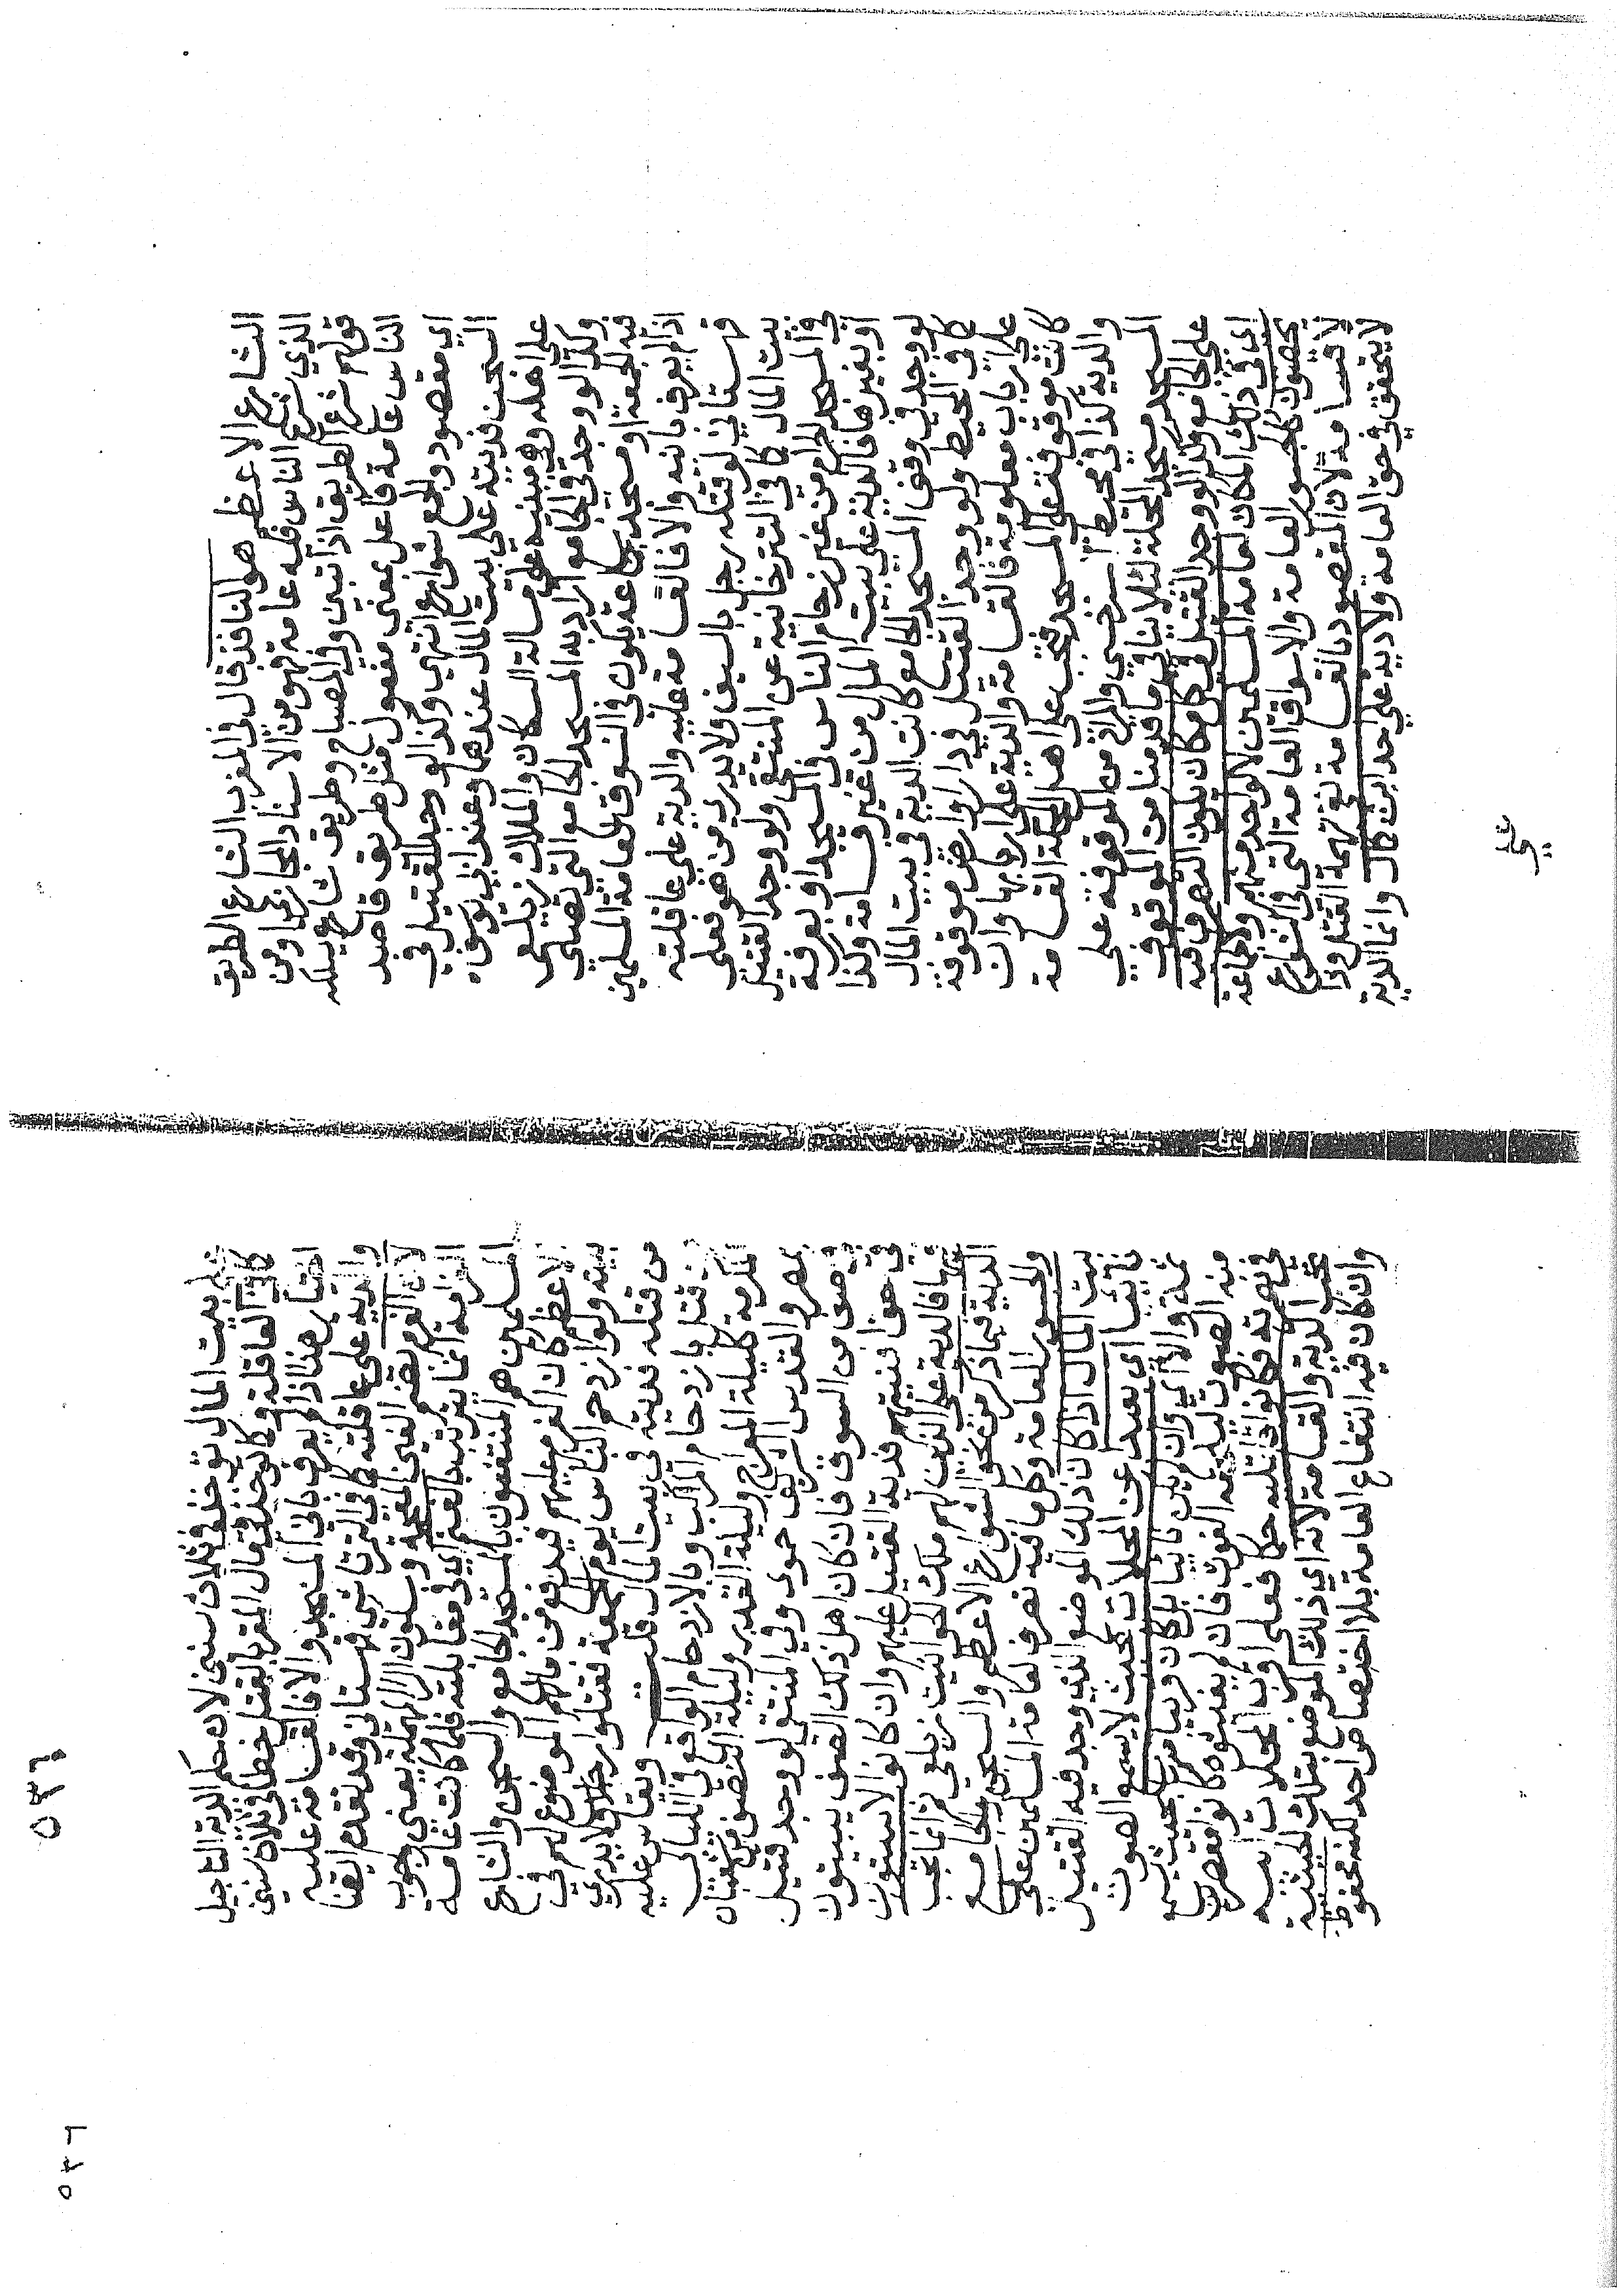 الشارع الاعظم هو النافذ قال في المغرب الشارع الطريق
الذي يشرع الناس فيه عامة فهو من الاسناد المجازي او من
قولهم شرع الطريق اذا تبين وفي المصباح وطريق شارع يسلكه
الناس عامة فاعل بمعنى مفعول مثل طريق قاصد
اي مقصود والجمع شوارع انتهى وكذا لو وجد القتيل في
السجن فديته على بيت المال عندهما وعند ابي يوسف
على اهله وهي مبنية على مسالة السكان والملاك زيلعي
وكذا لو وجد في الجامع اراد به المسجد الجامع التي تصلي
فيه الجمعة او مسجد جماعة يكون في السوق لعامة المسلمين
اذا لم يعرف بانيه والا فالقسامة عليه والدية على عاقلته
قهستاني لو قتله رجل بالسيف ولا يدري من هو فعلى
بيت المال كما في التترخانية عن المنتقى ولو وجد القتيل
في المسجد الحرام من غير زحام الناس في المسجد او بعرفة
او بغيرهما فالدية على بيت المال من غير قسامة وكذا
لو وجد في وقف المسجد الجامع كانت الدية في بيت المال
كما في المحيط ولو وجد القتيل في دار او ارض موقوفة
على ارباب معلومة فالقسامة والدية على اربابها وان
كانت موقوفة على المسجد فتجب على اهل المحلة القسامة
والدية كذا في محيط السرخسي والمراد من الموقوفة على
المسجد مسجد المحلة لئلا ينافي ما قدمنا من الموقوف
على الجامع وكذا لو وجد القتيل في كل مكان يكون التصرف فيه
اي في ذلك المكان لعامة المسلمين لا لواحد منهم ولا لجماعة
يحصون كجسور العامة والاسواق العامة التي في الشوارع
لا قسامة لان المقصود بالقسامة نفي تهمة القتل وذا
لا يتحقق في حق العامة ولا دية على احد ابن كمال وانما الدية
في بيت المال تؤخذ في ثلاث سنين لان حكم الدية التاجيل
كما في العاقلة وكما يؤخذ في مال المقر بالقتل خطا في ثلاث سنين
اختيار هذا اذا لم يعرف باني المسجد والا فالقسامة عليه
والدية على عاقلته كما في الترتاشي قهستاني وقد تقدم ايضا
لان الغرم بضم الغين المعجمة وسكون الراء المهملة يعني وجوب
الغرامة انما يترتب بالغنم اي في مقابلته فلما كانت عامة
المسلمين هم المنتفعون بالمسجد الجامع والسجن والشارع
الاعظم كان الغرم عليهم فيدفع من مالهم الموضوع لهم في
بيته ولو ازدحم الناس يوم الجمعة فقتلوا رجلا ولا يدري
من قتله فديته في بيت المال قلت ويقاس عليه
من قتل بازدحام المركب وبالازدحام الواقع في الليالي
المكرمة كليلة المعراج وليلة القدر وليلة النصف من شعبان
بمصر والقدس الشريف حموي وفي المنتقى لو وجد قتيل
في صف من السوق فان كان اهل ذلك الصف يبيتون
في حوانيتهم فدية القتيل عليهم وان كانوا لا يبيتون
فيها فالدية على الذين لهم ملك الحوانيت زيلعي ثم انما تجب
الدية فيما ذكر من نحو الشوارع الاعظم والسجن والجامع
والجسور للعامة وكل ما فيه تصرف لعامة المسلمين على
بيت المال اذا كان ذلك الموضع الذي وجد فيه القتيل
نائيا اي بعيدا عن المحلات بحيث لا يسمع الصوت
ثمة والا اي وان لم يكن نائيا بل كان قريبا منها بحيث يسمع
منه الصوت ليلحقه الغوث فان لم يغيثوه كانوا مقصرين
في نصرته فكانوا قاتليه حكما فعلى اقرب المحلات اليه
تجب الدية والقسامة لانه اي ذلك الموضع بتلك الحيثية
وان كان فيه انتفاع العامة بلا اختصاص احد لكنه محفوظ
٥٣٦
٥٣٦